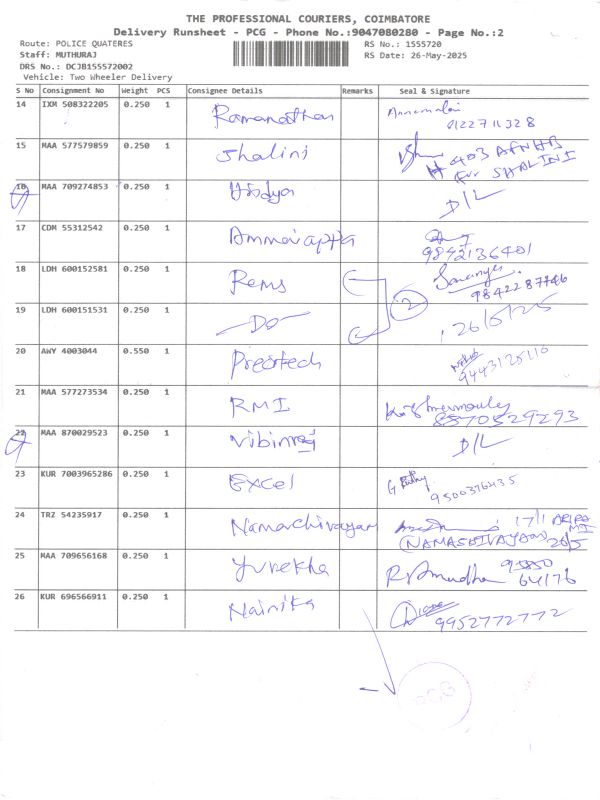 THE PROFESSIONAL COURIERS, COIMBATORE
Delivery Runsheet - PCG - Phone No.:9047080280 - Page No.:2
Route: POLICE QUATERES
RS No.: 1555720
Staff: MUTHURAJ
RS Date: 26-May-2025
DRS No.: DCJB155572002
Vehicle: Two Wheeler Delivery
S No Consignment No Weight PCS Consignee Details Remarks Seal & Signature
14 IXM 508322205 0.250 1 Ramanathan Annamalai
8122711328
15 MAA 577579859 0.250 1 Shalini H 403 AFNHB
for SHALINI
16 MAA 709274853 0.250 1 Vidya D/L
17 CDM 55312542 0.250 1
9842136401
18 LDH 600152581 0.250 1 Rems 2
9842287746
19 LDH 600151531 0.250 1 -Do- 26/5/25
20 AWY 4003044 0.550 1
9443125110
21 MAA 577273534 0.250 1 RMI
8570529293
22 MAA 870029523 0.250 1 Vibinraj D/L
23 KUR 7003965286 0.250 1 Excel G
9500376435
24 TRZ 54235917 0.250 1 Namachivayam 17/1
(NAMASHIVAYAM) 26/5
25 MAA 709656168 0.250 1 Yurekha R. Amudha
64176
26 KUR 696566911 0.250 1 Nainika
9952772772
PCG